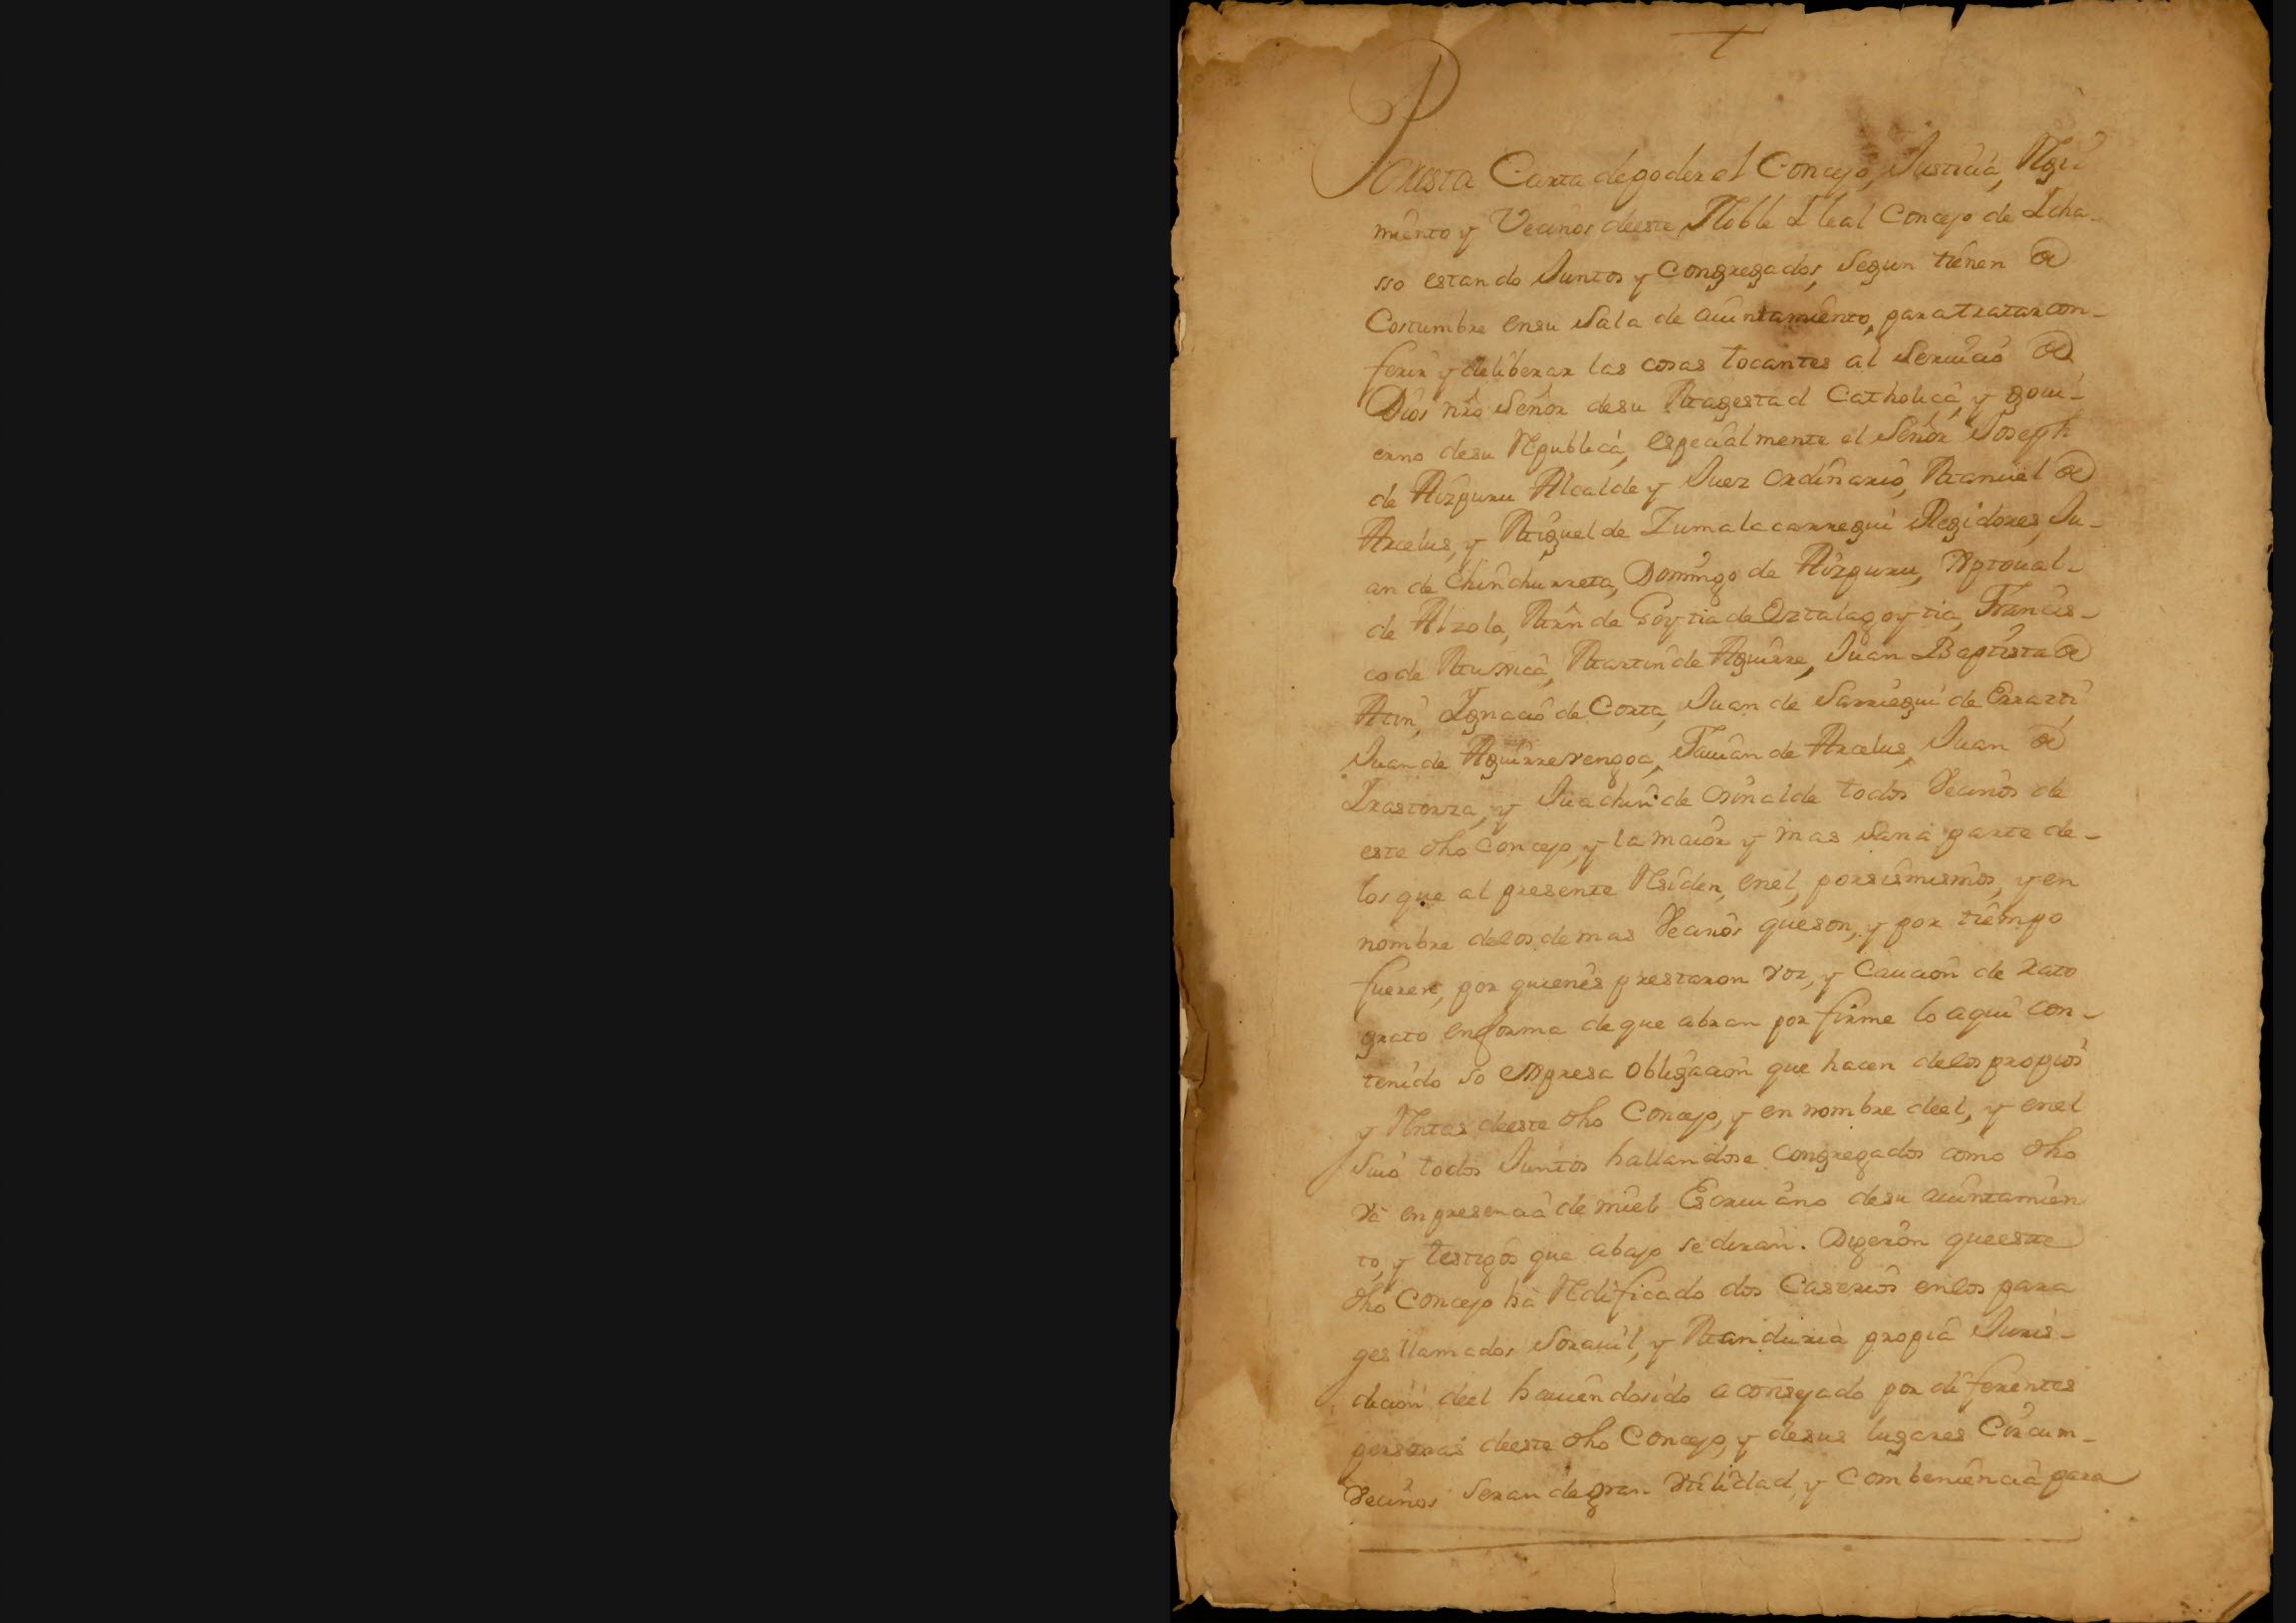 Por esta Carta de poder el Concejo, Justicia, Regi
miento y Vecinos deeste Noble Lleal Concejo de Icha-
sso estando Juntos y Congregados, Segun tienen de
Costumbre ensu Sala de aiuntamiento, para tratar con-
ferir y deliberar las cosas tocantes al Seruicio de
Dios nro Señor desu Magestad Catholica, y goui-
erno desu Republica, especialmente el Señor Joseph
de Aizpuru Alcalde y Juez ordinario, Manuel de
Arcelus, y Miguel de Zumalacarregui Regidores, Ju-
an de Chinchurreta, Domingo de Aizpuru,
de Alzola, Mrn de Goytia de Oztalagoytia, Francis-
co de Muxica, Martin de Aguirre, Juan Baptista de
Ignacio de Corta, Juan de Sarriegui de Errazti,
Juan de Aguirrerengoa, Fauian de Arcelus, Juan de
Irastorza, y Juachin de Osinalde todos Vecinos de
este dho Concejo, y la maior y mas Sana parte de-
los que al presente Residen, enel, porsimismos, y en
nombre delosdemas Vecinos queson, y por tiempo
fueren, por quienes prestaron voz, y Caucion de rato
grato enforma de que abran por firme lo aqui con-
tenido so expresa obligacion que hacen delos propios
y Rentas deeste dho Concejo, y en nombre deel, y enel
Suio todos Juntos hallandose Congregados como dho
va enpresencia de miel Escriuano desu aiuntamien
to, y testigos que abajo sediran. Digeron queeste
dho Concejo ha Redificado dos Caserios enlos para
ges llamados Sorauil, y Manduria propia Juris-
dicion deel hauiendosido aconsejado por diferentes
personas deeste dho Concejo, y desus lugares Circum-
Vecinos Seran degran Vtilidad, y Combeniencia para